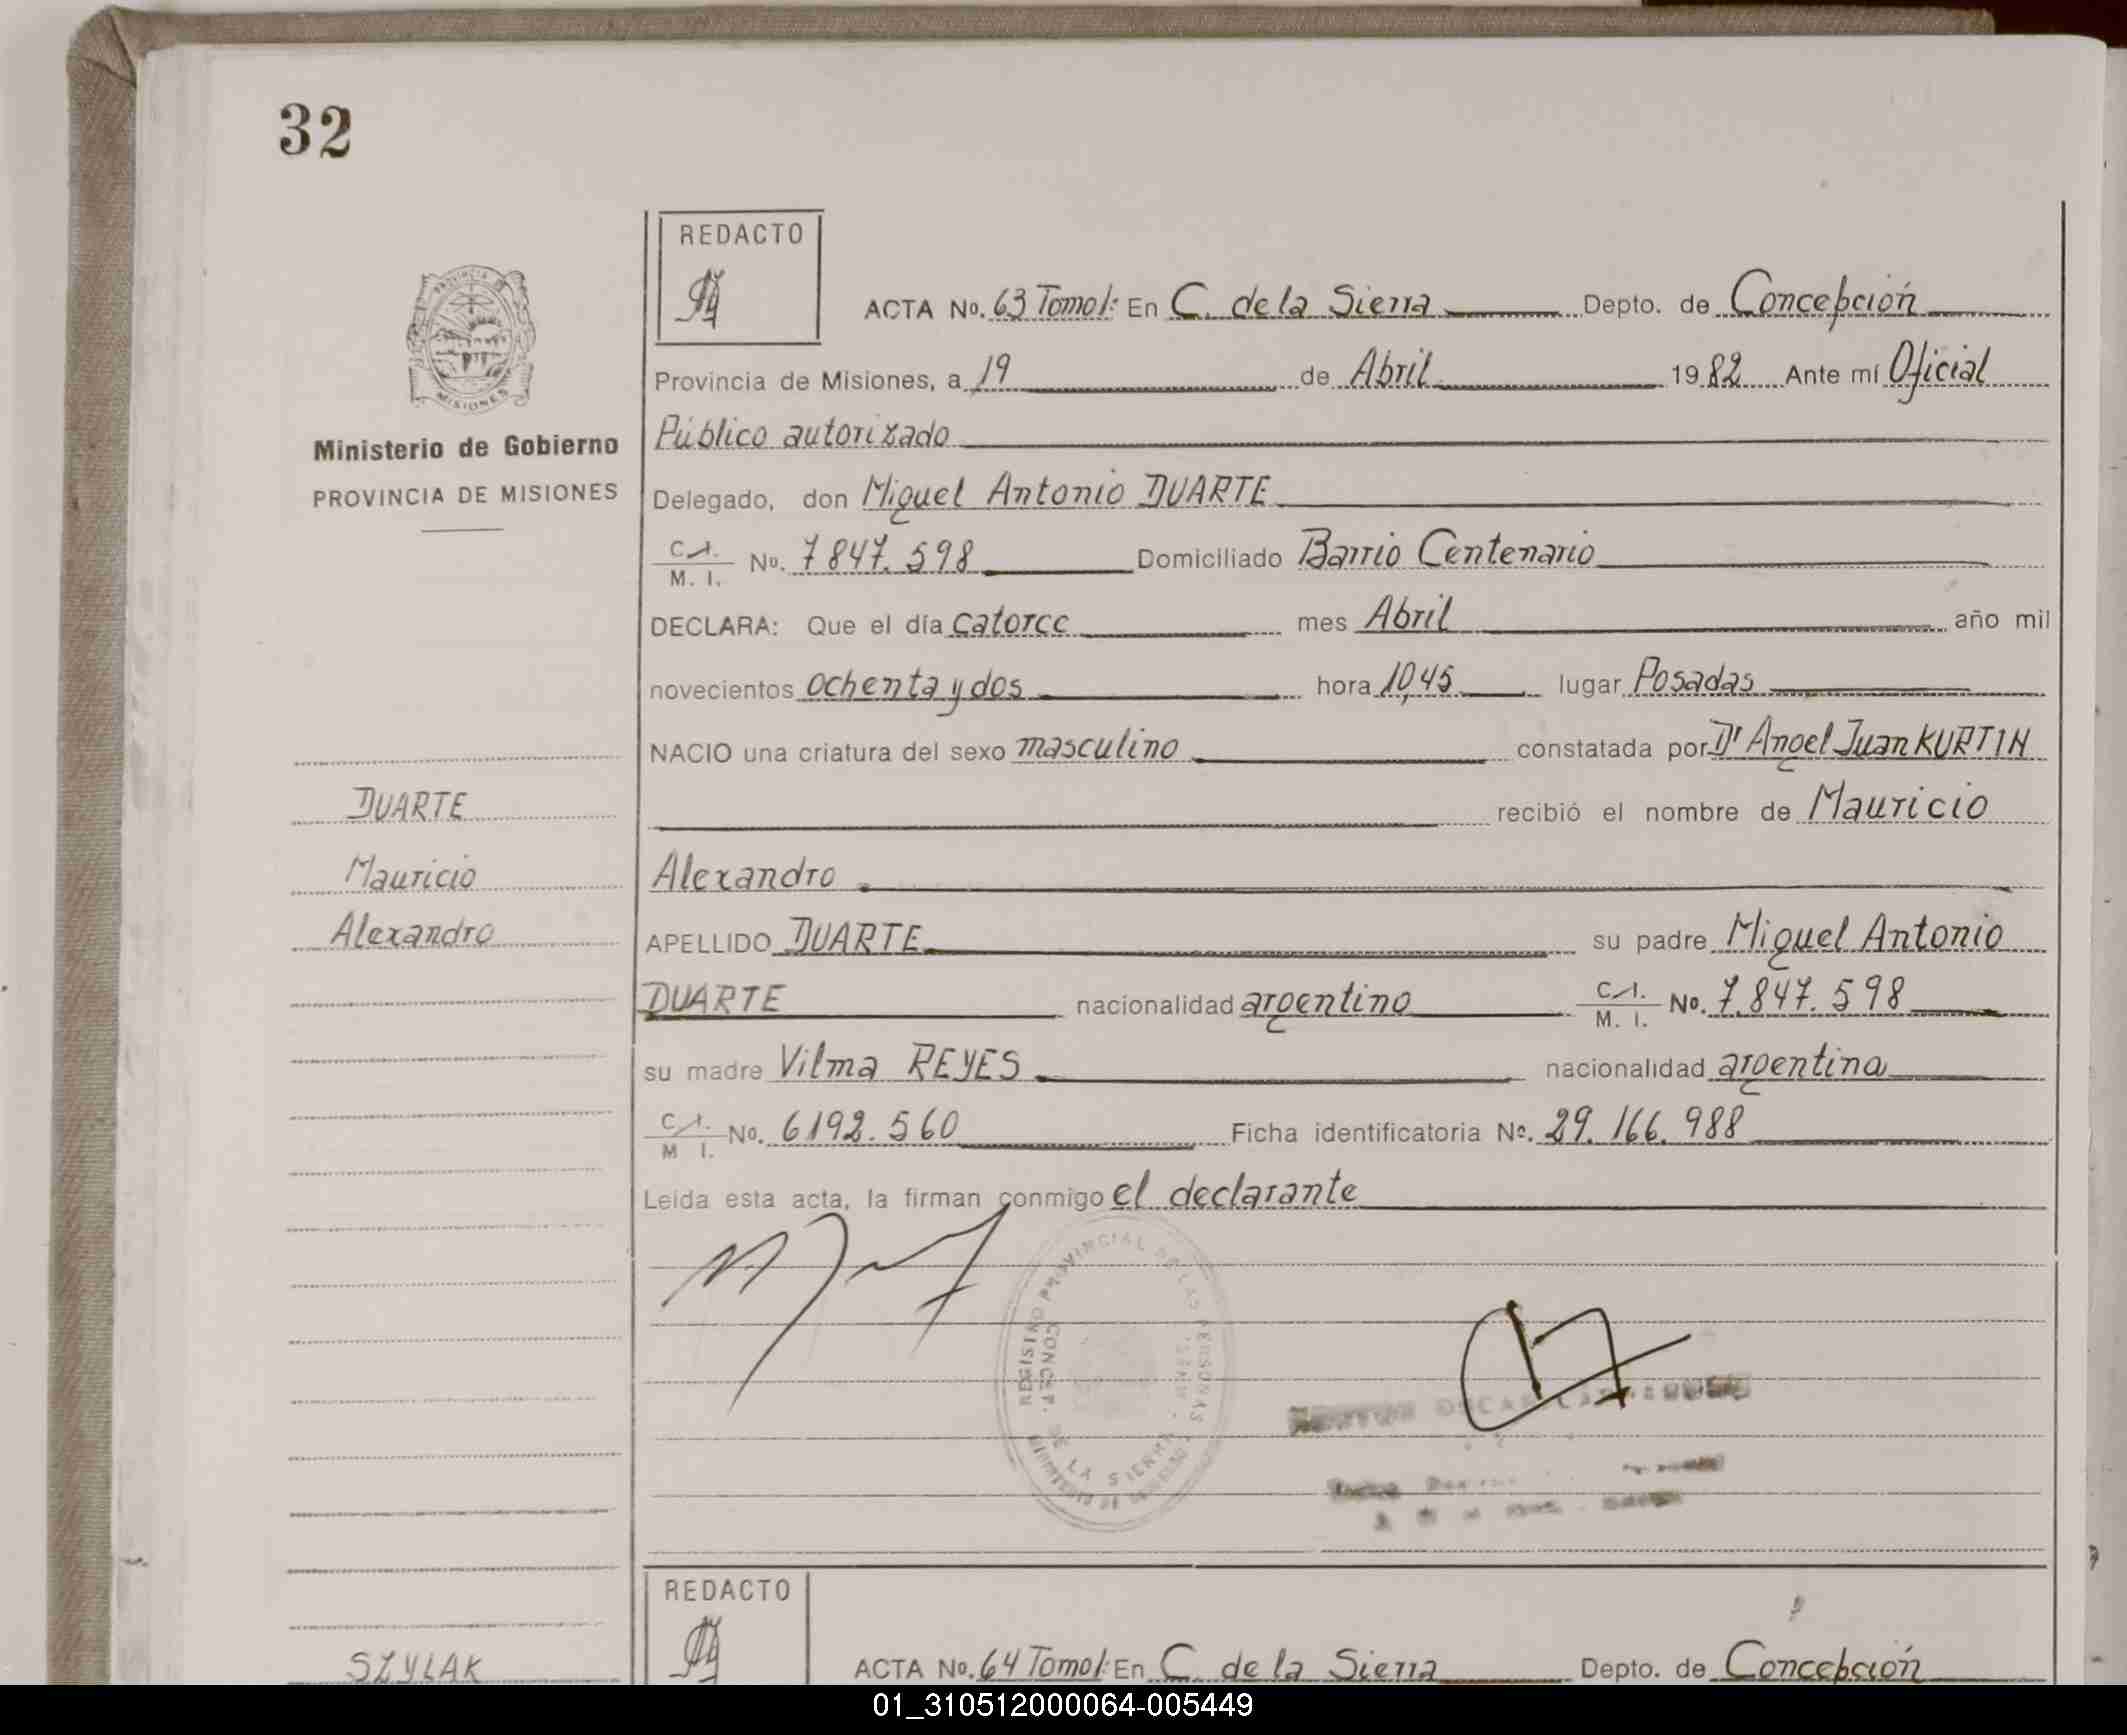 32
REDACTO
ACTA No. 63 Tomo I: En C. de la Sierra Depto. de Concepción
Provincia de Misiones, a 19 de Abril 1982 Ante mí Oficial
Público autorizado
Ministerio de Gobierno
PROVINCIA DE MISIONES
Delegado, don Miguel Antonio DUARTE
C.I. M. I. No. 7847.598 Domiciliado Barrio Centenario
DECLARA: Que el día catorce mes Abril año mil
novecientos ochenta y dos hora 10,45 lugar Posadas
NACIO una criatura del sexo masculino constatada por Dr Angel Juan KURTIN
DUARTE
recibió el nombre de Mauricio
Mauricio
Alexandro
Alexandro
APELLIDO DUARTE su padre Miguel Antonio
DUARTE nacionalidad argentino C.I. M. I. No. 7.847.598
su madre Vilma REYES nacionalidad argentina
C.I. M I. No. 6192.560 Ficha identificatoria No. 29.166.988
Leída esta acta, la firman conmigo el declarante
REGISTRO PROVINCIAL DE LAS PERSONAS
CONCEP. DE LA SIERRA
OSCAR
REDACTO
SZYLAK
ACTA No. 64 Tomo I: En C. de la Sierra Depto. de Concepción
01_310512000064-005449